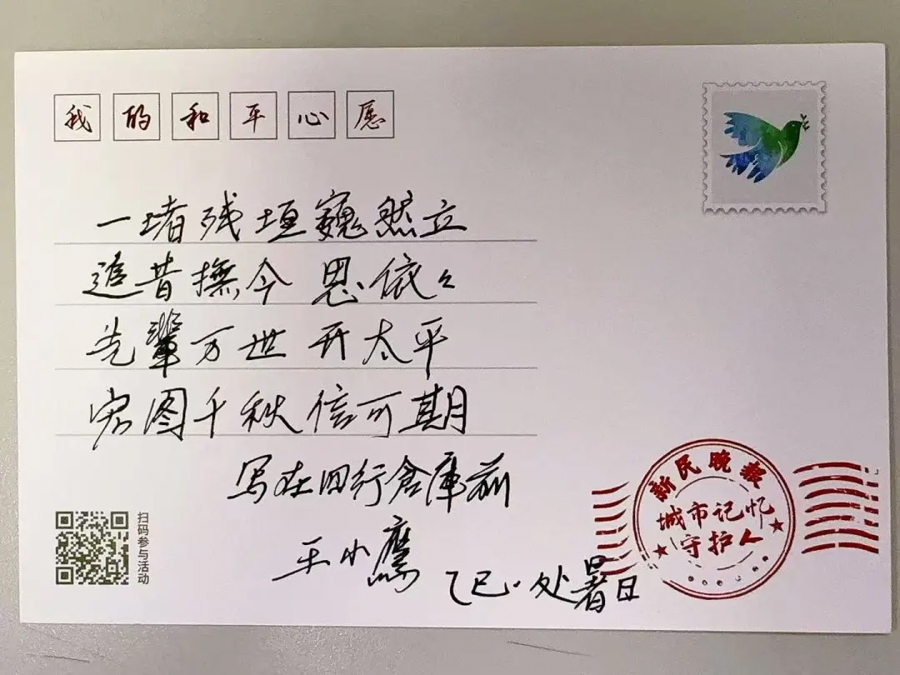 我的和平心愿
一堵残垣巍然立
追昔抚今恩依々
先輩万世开太平
宏图千秋信可期
写在四行倉庫前
王小鹰
乙巳·处暑日
扫码参与活动
新民晚报
城市记忆
守护人